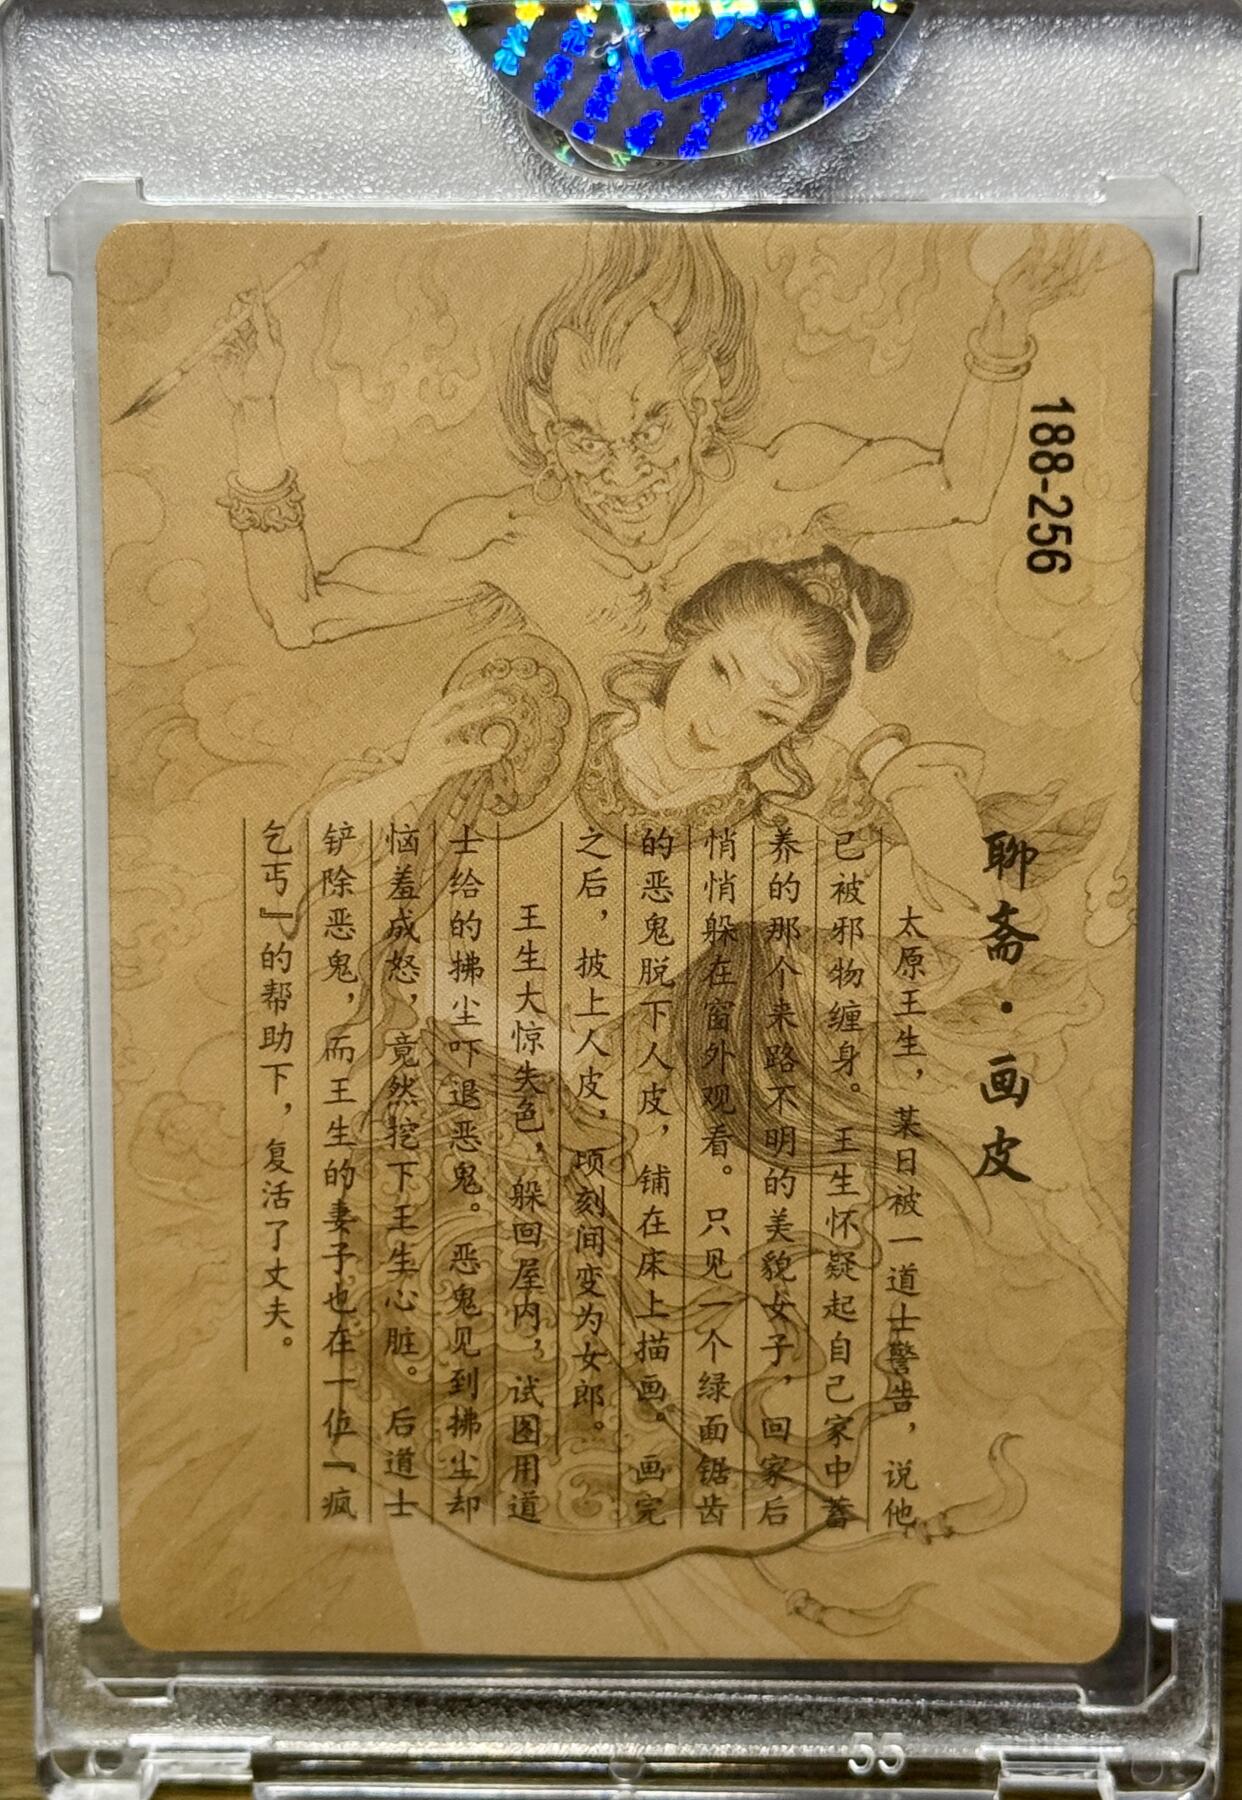 188-256
聊斋·画皮
太原王生，某日被一道士警告，说他
已被邪物缠身。王生怀疑起自己家中蓄
养的那个来路不明的美貌女子，回家后
悄悄躲在窗外观看。只见一个绿面锯齿
的恶鬼脱下人皮，铺在床上描画。画完
之后，披上人皮，顷刻间变为女郎。
王生大惊失色，躲回屋内，试图用道
士给的拂尘吓退恶鬼。恶鬼见到拂尘却
恼羞成怒，竟然挖下王生心脏。后道士
铲除恶鬼，而王生的妻子也在一位『疯
乞丐』的帮助下，复活了丈夫。
55